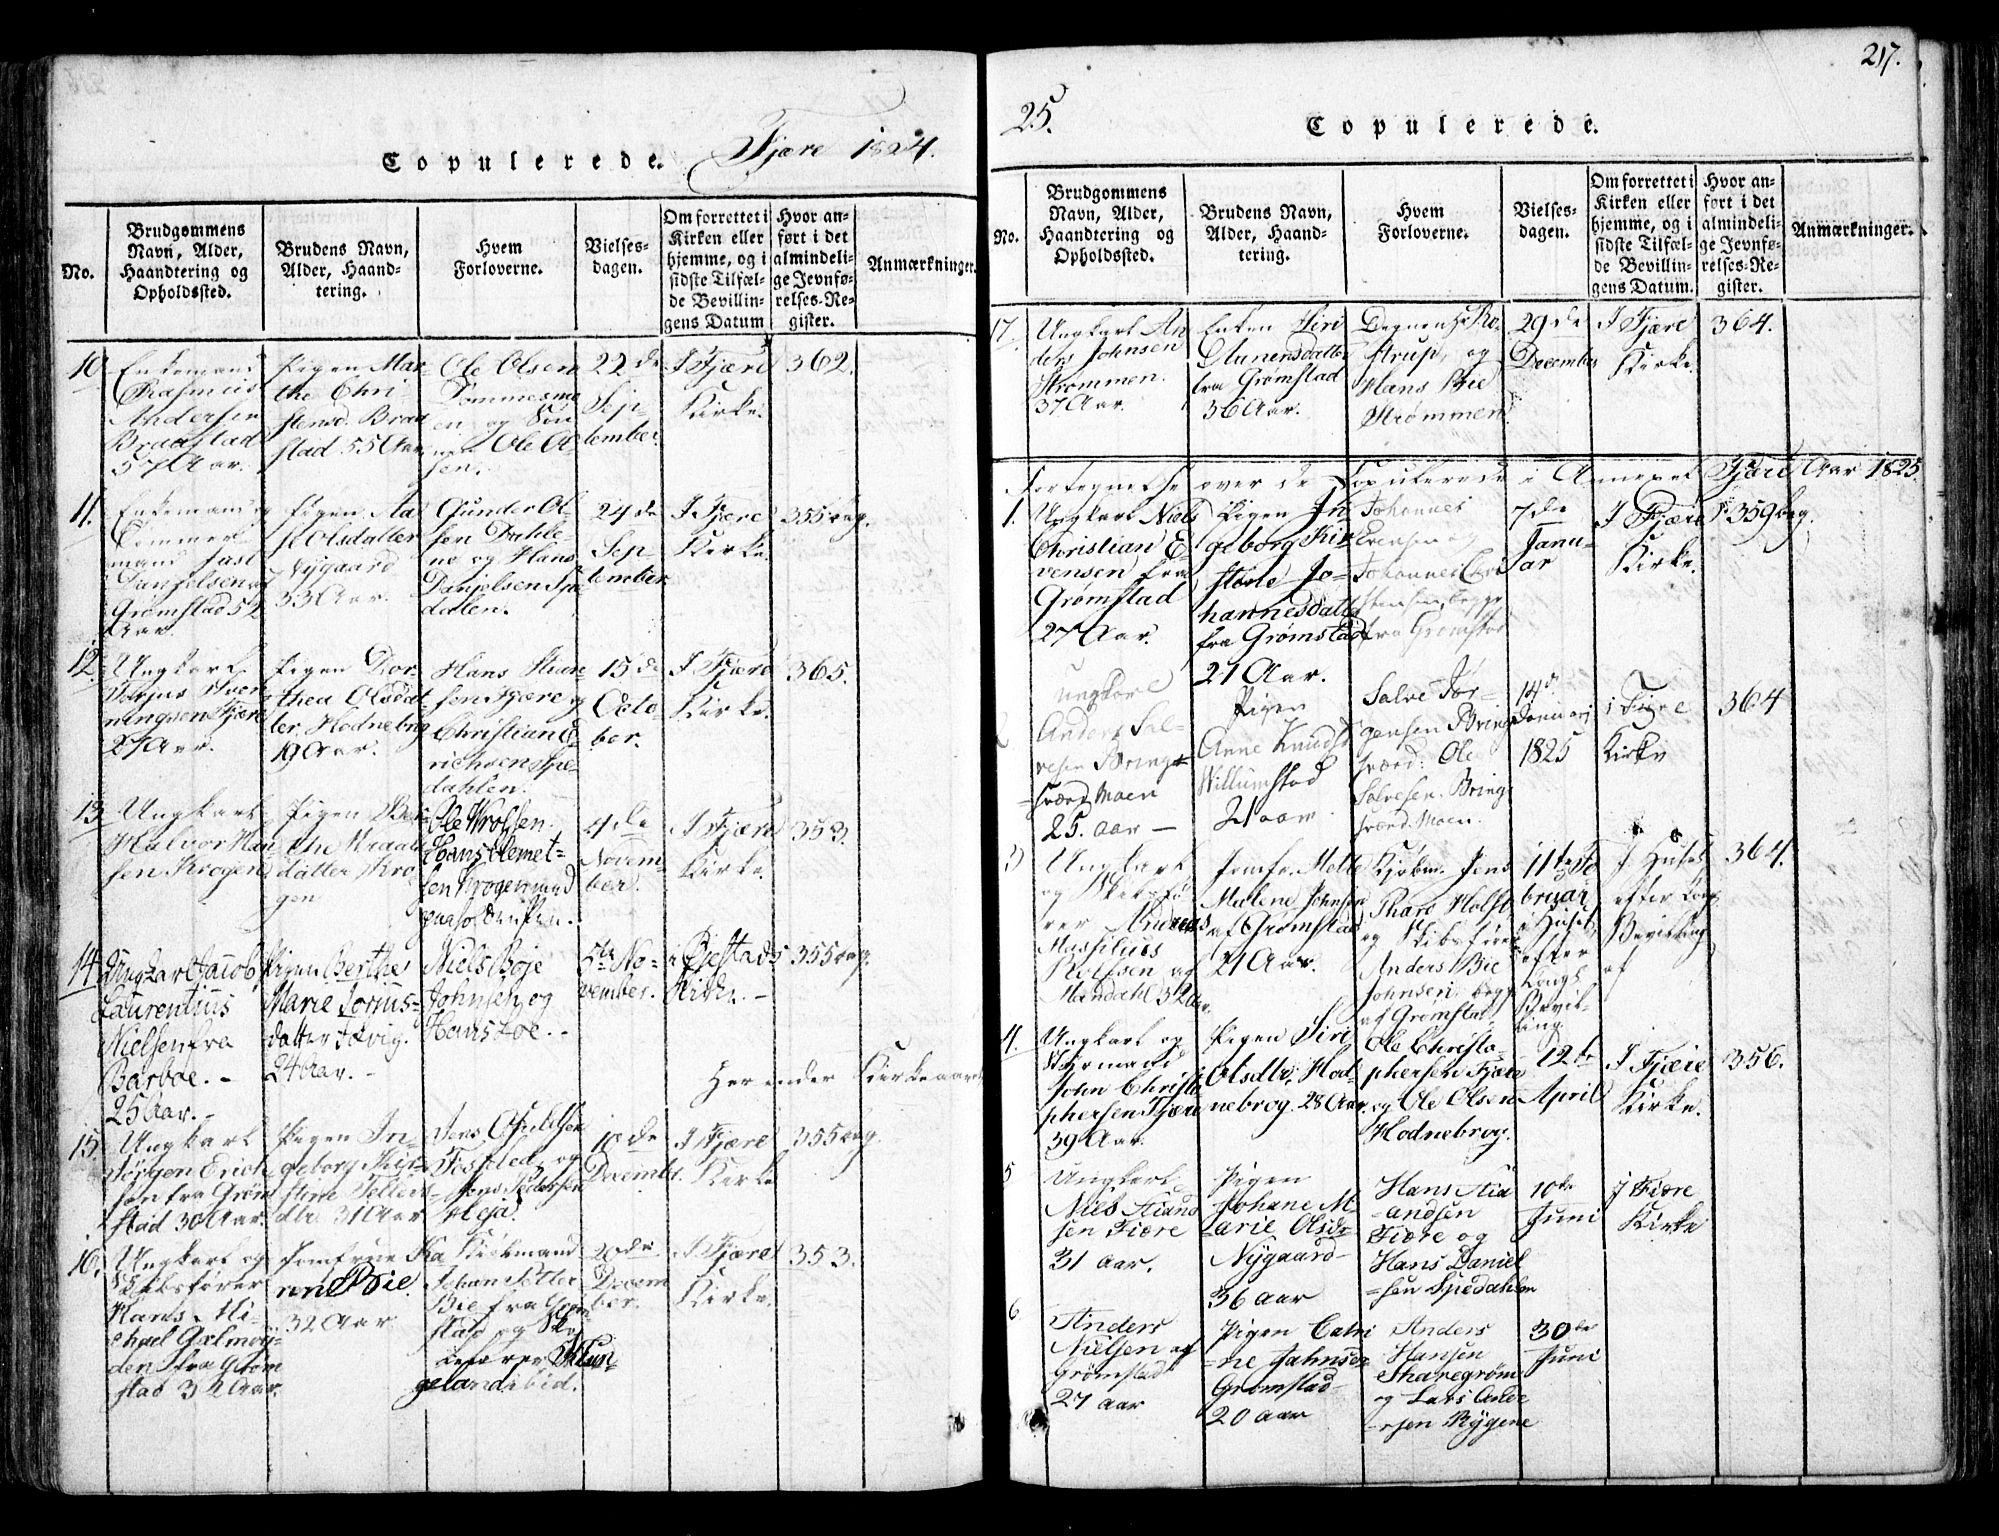 Copulerede. Fjære 1824.
No.
Brudgommens
Navn, Alder,
Haandtering og
Opholdssted.
Brudens Navn,
Alder, Haand-
tering.
Hvem
Forloverne.
Vielses-
dagen.
Om forrettet i
Kirken eller
hjemme, og i
sidste Tilfæl-
de Bevillin-
gens Datum
Hvor an-
ført i det
almindeli-
ge Jevnfø-
relses-Re-
gister.
Anmærkninger.
10.
Enkemand
Rasmus
Andersen
Braastad
57 Aar.
Pigen Mar-
the Chri
stensd. Braa
stad 55 Aar
Ole Olsen
Tømmesmo
en og Søn
Ole Ol
sen.
22de
Sep-
tember.
I Fjære
Kirke.
362.
11.
Enkemand og
mand Jast
Danjelsen af
Grømstad 52
Aar.
Pigen Aa
se Olsdatter
Nygaard
53 Aar.
Gunder Ol
sen Dahle
ne og Hans
Danjelsen Spe
dalen.
24de
Sep-
tember
I Fjære
Kirke.
355 bag.
12.
Ungkarl
Torjus Hven
ningsen Fjære
27 Aar.
Pigen Dor-
thea Olsdat
ter Hodnebrog
19 Aar.
Hans Stian
sen Fjære og
Christian E
richsen Spe-
dahlen.
15de
Octo-
ber.
I Fjære
Kirke.
365.
13.
Ungkarl
Halvor Han
sen Krogen
Pigen Ber
the
datter Kro
gen
Ole Wrolsen
Hans Clemet-
sen Krogen
4de
Novem-
ber.
I Fjære
Kirke.
353.
14.
Ungkarl Jacob
Laurentius
Nielsen fra
Barboe. -
25 Aar. -
Pigen Berthe
Marie Torius-
datter Tevig.
24 Aar. -
Niels Boje
Johnsen og
Hans Loe. -
5te No-
vember.
i Øjestads
Kirke. -
355 bag.
Her ender Kirkeaaret
15.
Ungkarl
Jørgen Erich
sen fra Grøm
stad 30 Aar.
Pigen In-
geborg Kir-
stine Tellefs-
dtr. 31 Aar
Jens
og
Jens Pedersen
10de
Decembr.
I Fjære
Kirke
355 bag.
16.
Ungkarl og
Skibsfører
Hans Mi-
chael Gælmøy-
den fra Grøm
stad 32 Aar.
Jomfrue Ka
ren Bie.
32 Aar
Kiøbmand
Johan Petter
Bie fra Grøm
stad og Ski
befører Klun-
geland ibid.
20de
Decem
ber.
I Fjære
Kirke.
353.
217.
25.
Copulerede.
No.
Brudgommens
Navn, Alder,
Haandtering og
Opholdssted.
Brudens Navn,
Alder, Haand-
tering.
Hvem
Forloverne.
Vielses-
dagen.
Om forrettet i
Kirken eller
hjemme, og i
sidste Tilfæl-
de Bevillin-
gens Datum.
Hvor an-
ført i det
almindeli-
ge Jevnfø-
relses-Re-
gister.
Anmærkninger.
17.
Ungkarl An
ders Johnsen
Strømmen.
37 Aar.
Enken Siri
Gunensdatter
fra Grømstad
36 Aar.
Degnen Hr. Ro
strup, og
Hans Bie
Strømmen.
29de
December
I Fjære
Kirke.
364.
Fortegnelse over de Copulerede i Annexet Fjære Aar 1825.
1.
Ungkarl Niels
Christian E-
vensen fra
Grømstad
27 Aar.
Pigen In
geborg Kir
stine Jo-
hannesdatter
fra Grømstad
21 Aar.
Johannes
Evensen og
Johannes Chri
stensen, begge
fra Grømstad
7de
Janu-
ar
I Fjære
Kirke.
359 bag.
2
Ungkarl
Anders Sal-
vesen Bring-
sværd Moen
25. Aar -
Pigen
Anne Knudsd.
Willumstad
21 Aar.
Salve Jør-
gensen Bring
sværd: Ole
Salvesen. Bring
sværd. Moen.
14de
Januarj
1825
i Fiære
Kirke
364
3
Ungkarl
og Skibsfø
rer Andreas
Massilius
Rolfsen af
Mandahl 32 Aar.
Jomfr. Mette
Malene Johnsen
af Grømstad
21 Aar.
Kjøbm. Jens
Tharo Holst
og Skibsfører
Anders Bie
Johnsen, begge
af Grømstad.
11te Fe
bruar
i Huset
efter
Kongl.
Bevil-
ling.
I Huset
efter Kong
Bevilling
af
364.
4.
Ungkarl og
Styrmand
John Christo
phersen Fjære
39 Aar.
Pigen Siri
Olsdtr. Hod-
nebrog. 28 Aar.
Ole Christo-
phersen Fjære
og Ole Olsen
Hodnebrog.
12te
April
I Fjære
Kirke.
356.
5
Ungkarl
Niels Stians
sen Fiære
31 Aar.
Pigen
Johane M
arie Olsdr
Nygaard
36 Aar
Hans Stia
andsen
Fiære og
Hans Daniel
-sen Spedahlen
10de
Juni
I Fiære
Kirke
6
Anders
Nielsen af
Grømstad
27 Aar
Pigen Catri
-ne Jahnsen
Grømstad
20 Aar
Anders
Hansen
Sharegrøm
og Lars Ande
-rsen Rygene
30te
Juni